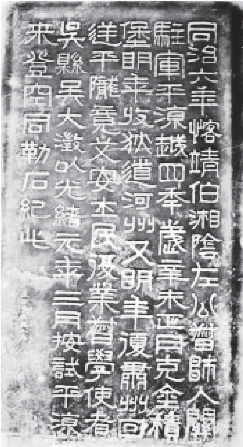 同治六年恪靖伯湘陰左公督師入關
駐軍平涼越四年歲辛未正月克金積
堡明年收狄道河州又明年復肅州回
逆平隴竟乂安士民復業督學使者
吳縣吳大澂以光緒元年三月按試平涼
來登空同勒石紀此